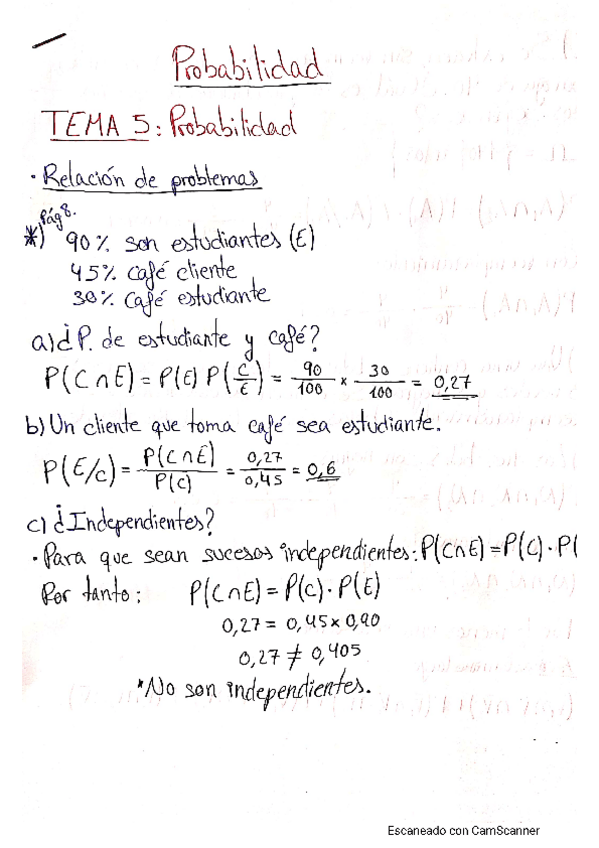 Probabilidad
TEMA 5: Probabilidad
· Relación de problemas
Pág 8.
*) 90% son estudiantes (E)
45% café cliente
30% café estudiante
a) ¿P. de estudiante y café?
P(C∩E) = P(E) P(C/E) = 90/100 x 30/100 = 0,27
b) Un cliente que toma café sea estudiante.
P(E/C) = P(C∩E)/P(C) = 0,27/0,45 = 0,6
c) ¿Independientes?
· Para que sean sucesos independientes: P(C∩E) = P(C) · P(
Por tanto: P(C∩E) = P(C) · P(E)
0,27 = 0,45 x 0,90
0,27 ≠ 0,405
*No son independientes.
Escaneado con CamScanner